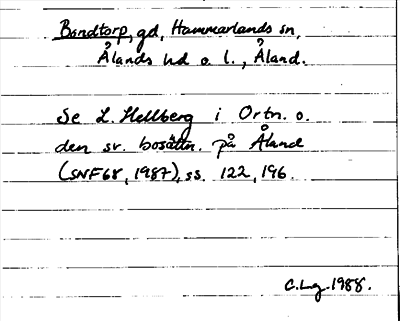 Bondtorp, gd, Hammarlands sn,
Ålands hd o. l., Åland.
Se L. Hellberg i Ortn. o.
den sv. bosättn. på Åland
(SNF68, 1987), ss. 122, 196.
C. Lg. 1988.